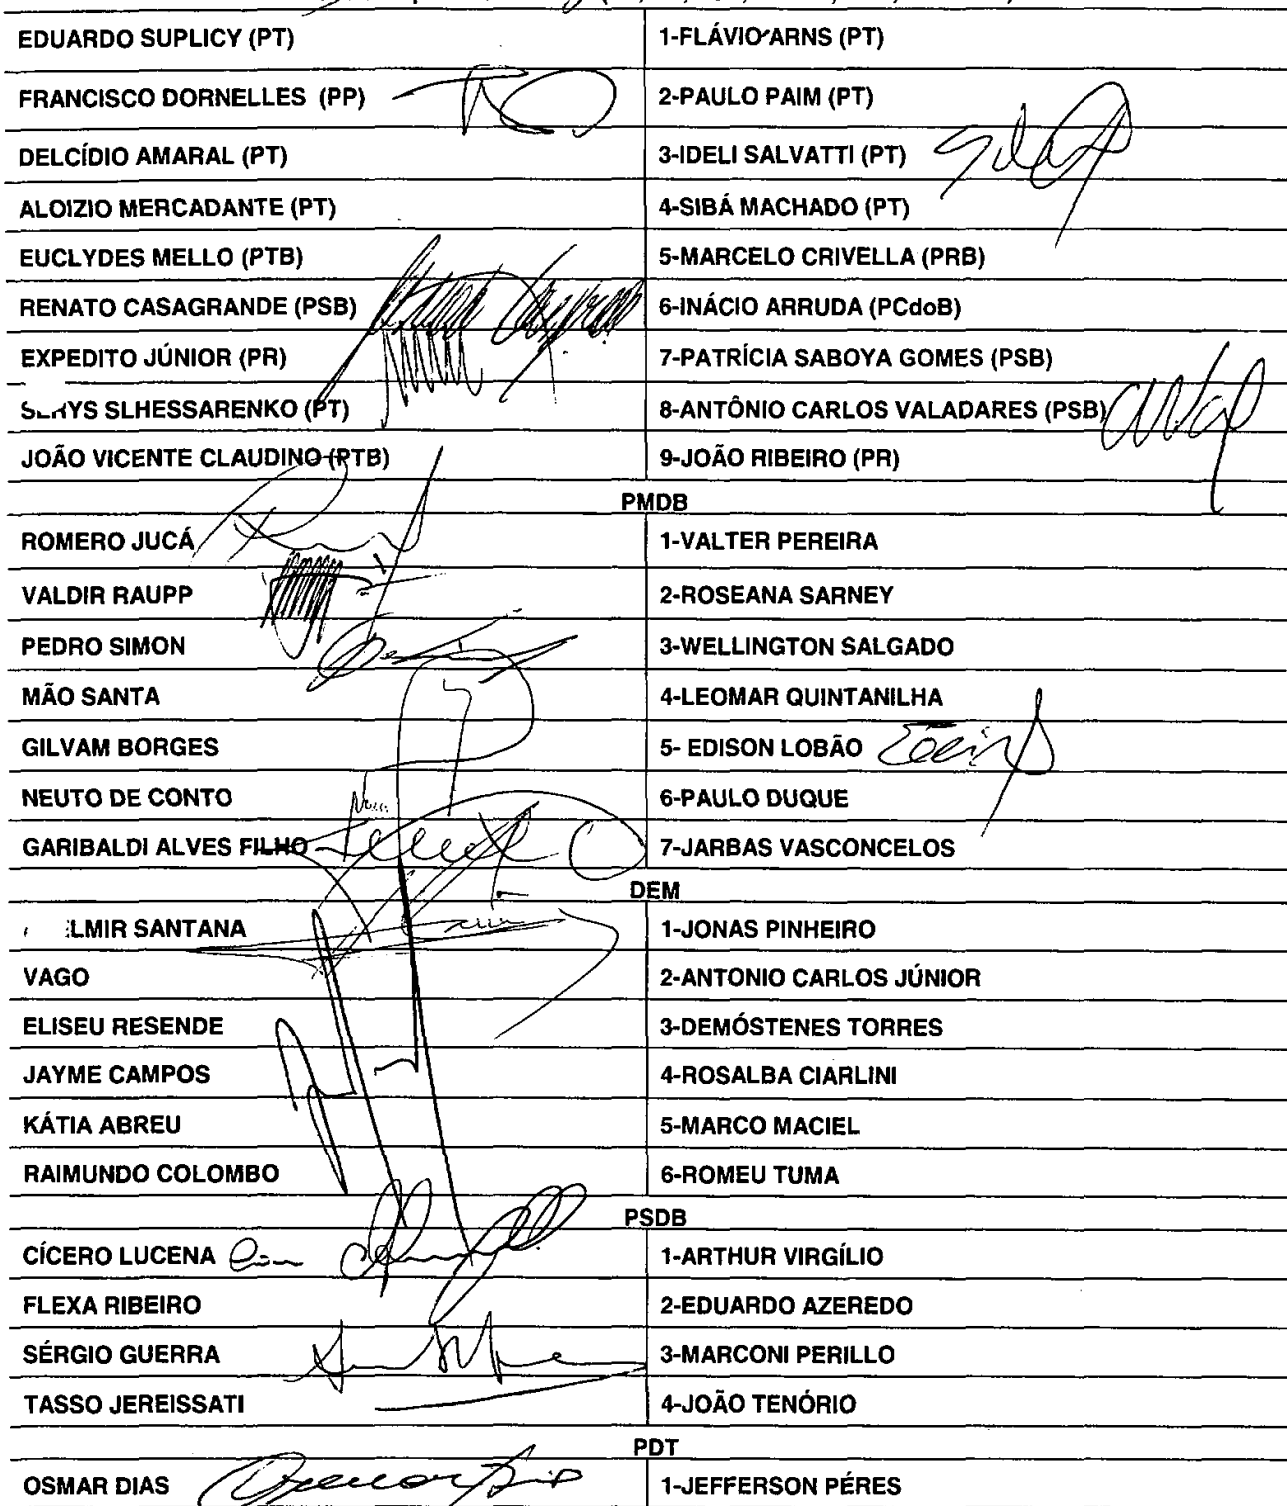 EDUARDO SUPLICY (PT) 1-FLÁVIO ARNS (PT)
FRANCISCO DORNELLES (PP) 2-PAULO PAIM (PT)
DELCÍDIO AMARAL (PT) 3-IDELI SALVATTI (PT)
ALOIZIO MERCADANTE (PT) 4-SIBÁ MACHADO (PT)
EUCLYDES MELLO (PTB) 5-MARCELO CRIVELLA (PRB)
RENATO CASAGRANDE (PSB) 6-INÁCIO ARRUDA (PCdoB)
EXPEDITO JÚNIOR (PR) 7-PATRÍCIA SABOYA GOMES (PSB)
SLHESSARENKO (PT) 8-ANTÔNIO CARLOS VALADARES (PSB)
JOÃO VICENTE CLAUDINO (PTB) 9-JOÃO RIBEIRO (PR)
PMDB
ROMERO JUCÁ 1-VALTER PEREIRA
VALDIR RAUPP 2-ROSEANA SARNEY
PEDRO SIMON 3-WELLINGTON SALGADO
MÃO SANTA 4-LEOMAR QUINTANILHA
GILVAM BORGES 5- EDISON LOBÃO
NEUTO DE CONTO 6-PAULO DUQUE
GARIBALDI ALVES FILHO 7-JARBAS VASCONCELOS
DEM
LMIR SANTANA 1-JONAS PINHEIRO
VAGO 2-ANTONIO CARLOS JÚNIOR
ELISEU RESENDE 3-DEMÓSTENES TORRES
JAYME CAMPOS 4-ROSALBA CIARLINI
KÁTIA ABREU 5-MARCO MACIEL
RAIMUNDO COLOMBO 6-ROMEU TUMA
PSDB
CÍCERO LUCENA 1-ARTHUR VIRGÍLIO
FLEXA RIBEIRO 2-EDUARDO AZEREDO
SÉRGIO GUERRA 3-MARCONI PERILLO
TASSO JEREISSATI 4-JOÃO TENÓRIO
PDT
OSMAR DIAS 1-JEFFERSON PÉRES